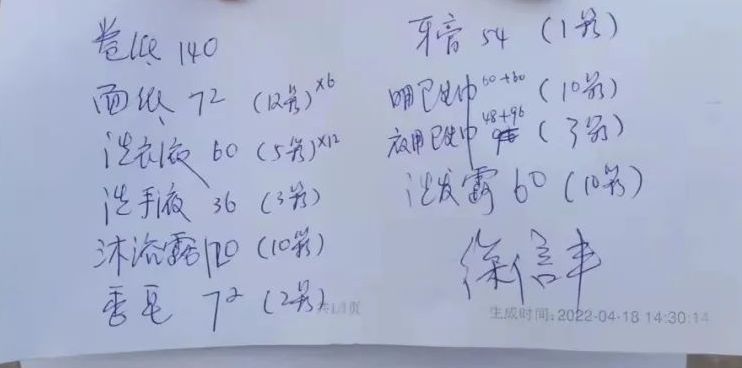 卷纸 140
面纸 72 (12箱)×6
洗衣液 60 (5箱)×12
洗手液 36 (3箱)
沐浴露 120 (10箱)
香皂 72 (2箱)
牙膏 54 (1箱)
日用卫生巾 60+60 (10箱)
夜用卫生巾 48+96 (3箱)
洗发露 60 (10箱)
徐信丰
共1/1页
生成时间:2022-04-18 14:30:14